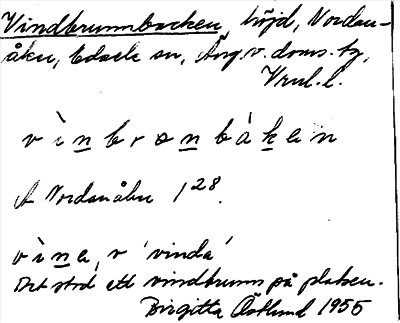 Vindbrunnbacken, höjd, Nordan-
åker, Edsele sn, Ång. v. doms. tg,
v ì n b r o n b à k e i n
A Nordanåker 1 28.
v ì n a, v 'vinda'
Det stod ett vindbrunn på platsen.
Birgitta Östlund 1955